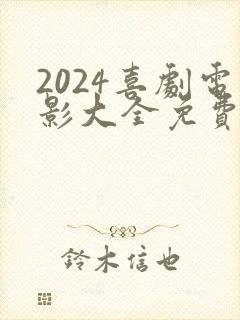 2024喜劇電
影大全免費
鈴木信也